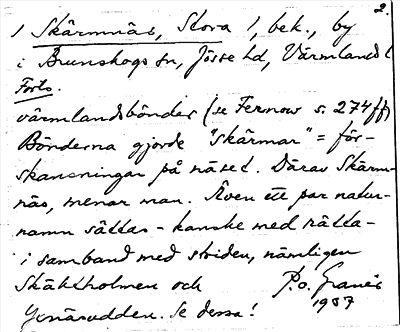 2.
1 Skärmnäs, Stora 1, bek., by
i Brunskogs sn, Jösse hd, Värmlands l
Forts.
värmlandsbönder (se Fernow s. 274 ff)
Bönderna gjorde "skärmar" = för-
skansningar på näset. Därav Skärm-
näs, menar man. Även ett par natur-
namn sättas - kanske med rätta -
i samband med striden, nämligen
Skäktholmen och P.o. Granér
1937
udden. Se dessa!